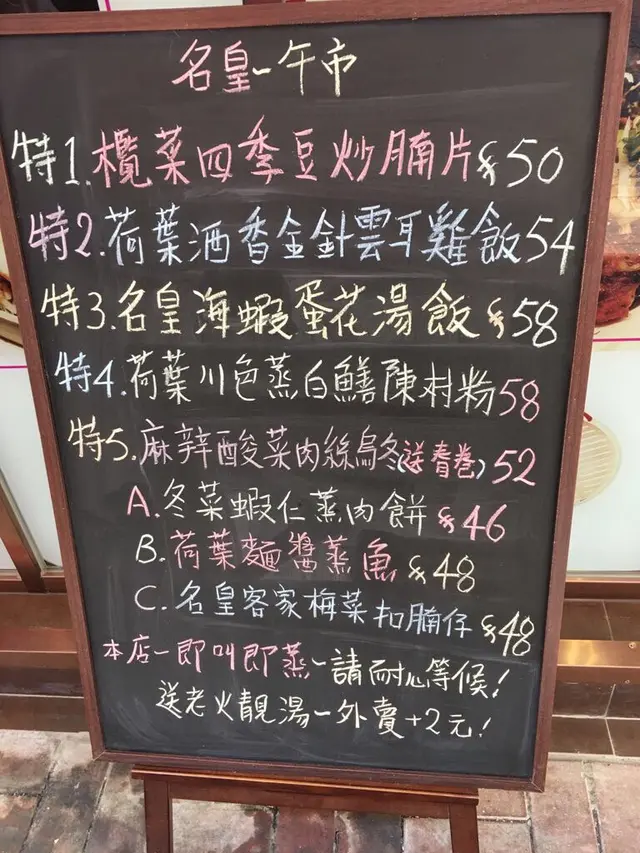 名皇－午市
特1.欖菜四季豆炒腩片$50
特2.荷葉酒香金針雲耳雞飯54
特3.名皇海蝦蛋花湯飯$58
特4.荷葉川色蒸白鱔陳村粉58
特5.麻辣酸菜肉絲烏冬(送春卷)52
A.冬菜蝦仁蒸肉餅$46
B.荷葉麵醬蒸魚$48
C.名皇客家梅菜扣腩仔$48
本店－即叫即蒸－請耐心等候!
送老火靚湯－外賣+2元!